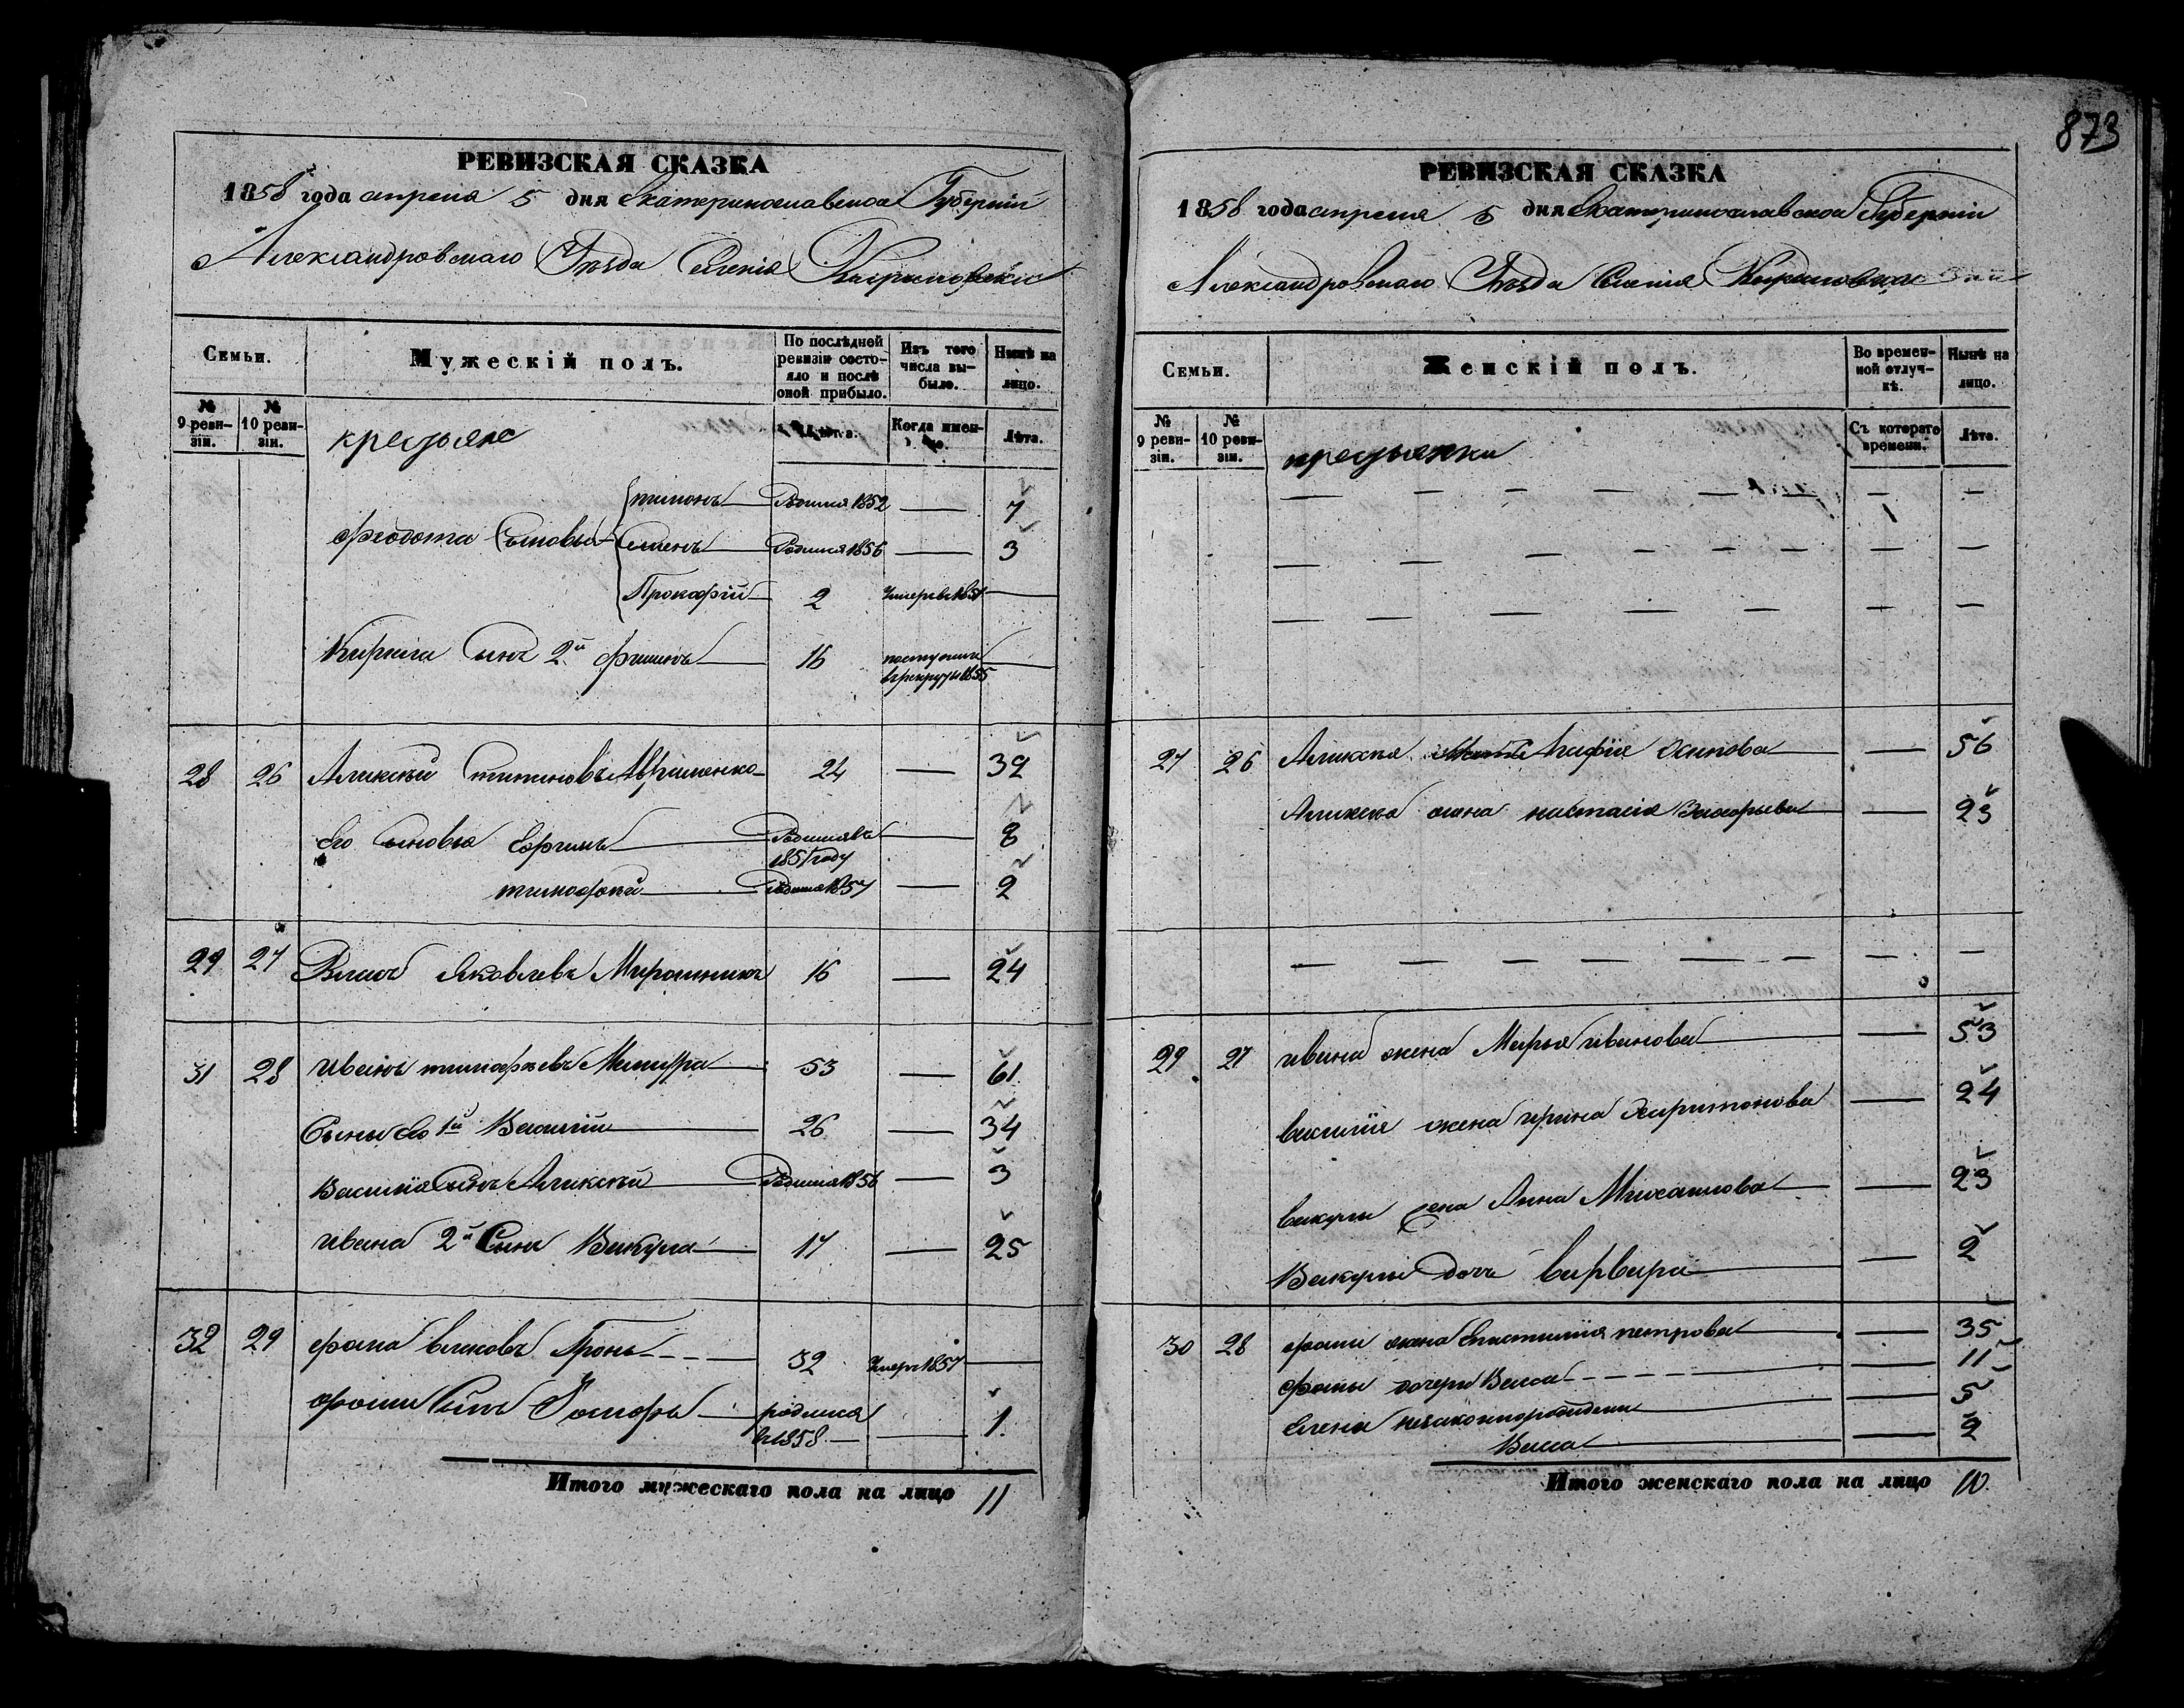 873
РЕВИЗСКАЯ СКАЗКА
1858 года апреля 5 дня Екатеринославской Губерніи
Александровскаго Уѣзда Селенія
Семьи.
Мужескій полъ.
По послѣдней ревизіи состояло и послѣ оной прибыло.
Изъ того числа выбыло.
Нынѣ на лицо.
№ 9 ревизіи.
№ 10 ревизіи.
крестьяне
Лѣта.
Когда именно.
Лѣта.
тимонъ Родился 1852 — 7
Федота Сыновья Семенъ Родился 1856 — 3
Прокофій 2 Умеръ 1851 —
Кирила Сынъ 2й 16 поступилъ в рекруты 1855 —
28 26 Аликсѣй 24 — 39
Его Сыновья Ефимъ Родился въ 1851 году — 8
тимофѣй Родился 1857 — 2
29 27 Власъ Яковлевъ Мирошникъ 16 — 24
31 28 иванъ тимофѣевъ 53 — 61
Сынъ Его 1й Василій 26 — 34
Василія Сынъ Аликсѣй Родился 1856 — 3
ивана 2й Сынъ Вакула 17 — 25
32 29 фома Гронь 32 Умеръ 1857 —
фомы Сынъ родился в 1858 — 1
Итого мужескаго пола на лицо 11
РЕВИЗСКАЯ СКАЗКА
1858 года апреля 5 дня Екатеринославской Губерніи
Александровскаго Уѣзда Селенія
Семьи.
Женскій полъ.
Во временной отлучкѣ.
Нынѣ на лицо.
№ 9 ревизіи.
№ 10 ревизіи.
крестьянки
Съ котораго времени.
Лѣта.
27 26 Осипова — 56
жена настасія Захарьева — 23
29 27 ивана жена Марья иванова — 53
василія жена ирина Харитонова — 24
вакулы жена Анна Михаилова — 23
Вакулы дочь варвара — 2
30 28 фомы жена петрова — 35
фомы дочери Васса — 11
Елена незаконнорожденная — 5
Васса — 2
Итого женскаго пола на лицо 10